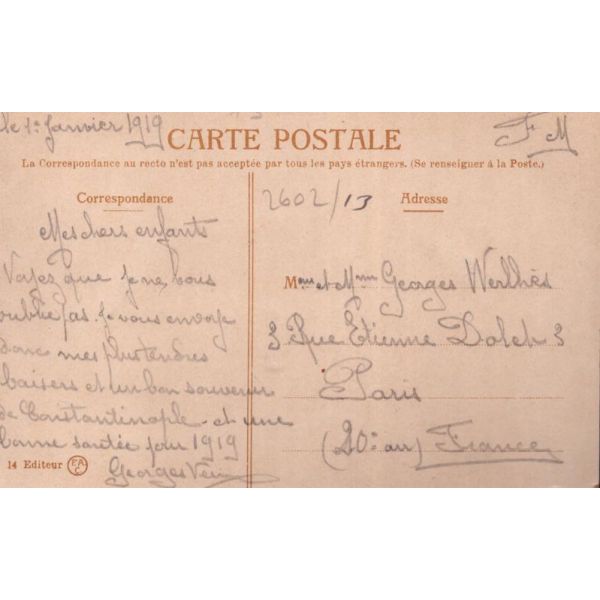 le 1e Janvier 1919
F M
CARTE POSTALE
La Correspondance au recto n'est pas acceptée par tous les pays étrangers. (Se renseigner à la Poste.)
Correspondance
2602/13
Adresse
Mes chers enfants
Voyez que je ne vous
oublie pas. Je vous envoye
donc mes plus tendres
baisers et un bon souvenir
de Constantinople et une
bonne santée pour 1919
Georges
14 Editeur EAC
Mme et Mr Georges
3 Rue Etienne Dolet 3
Paris
(20e arr) France